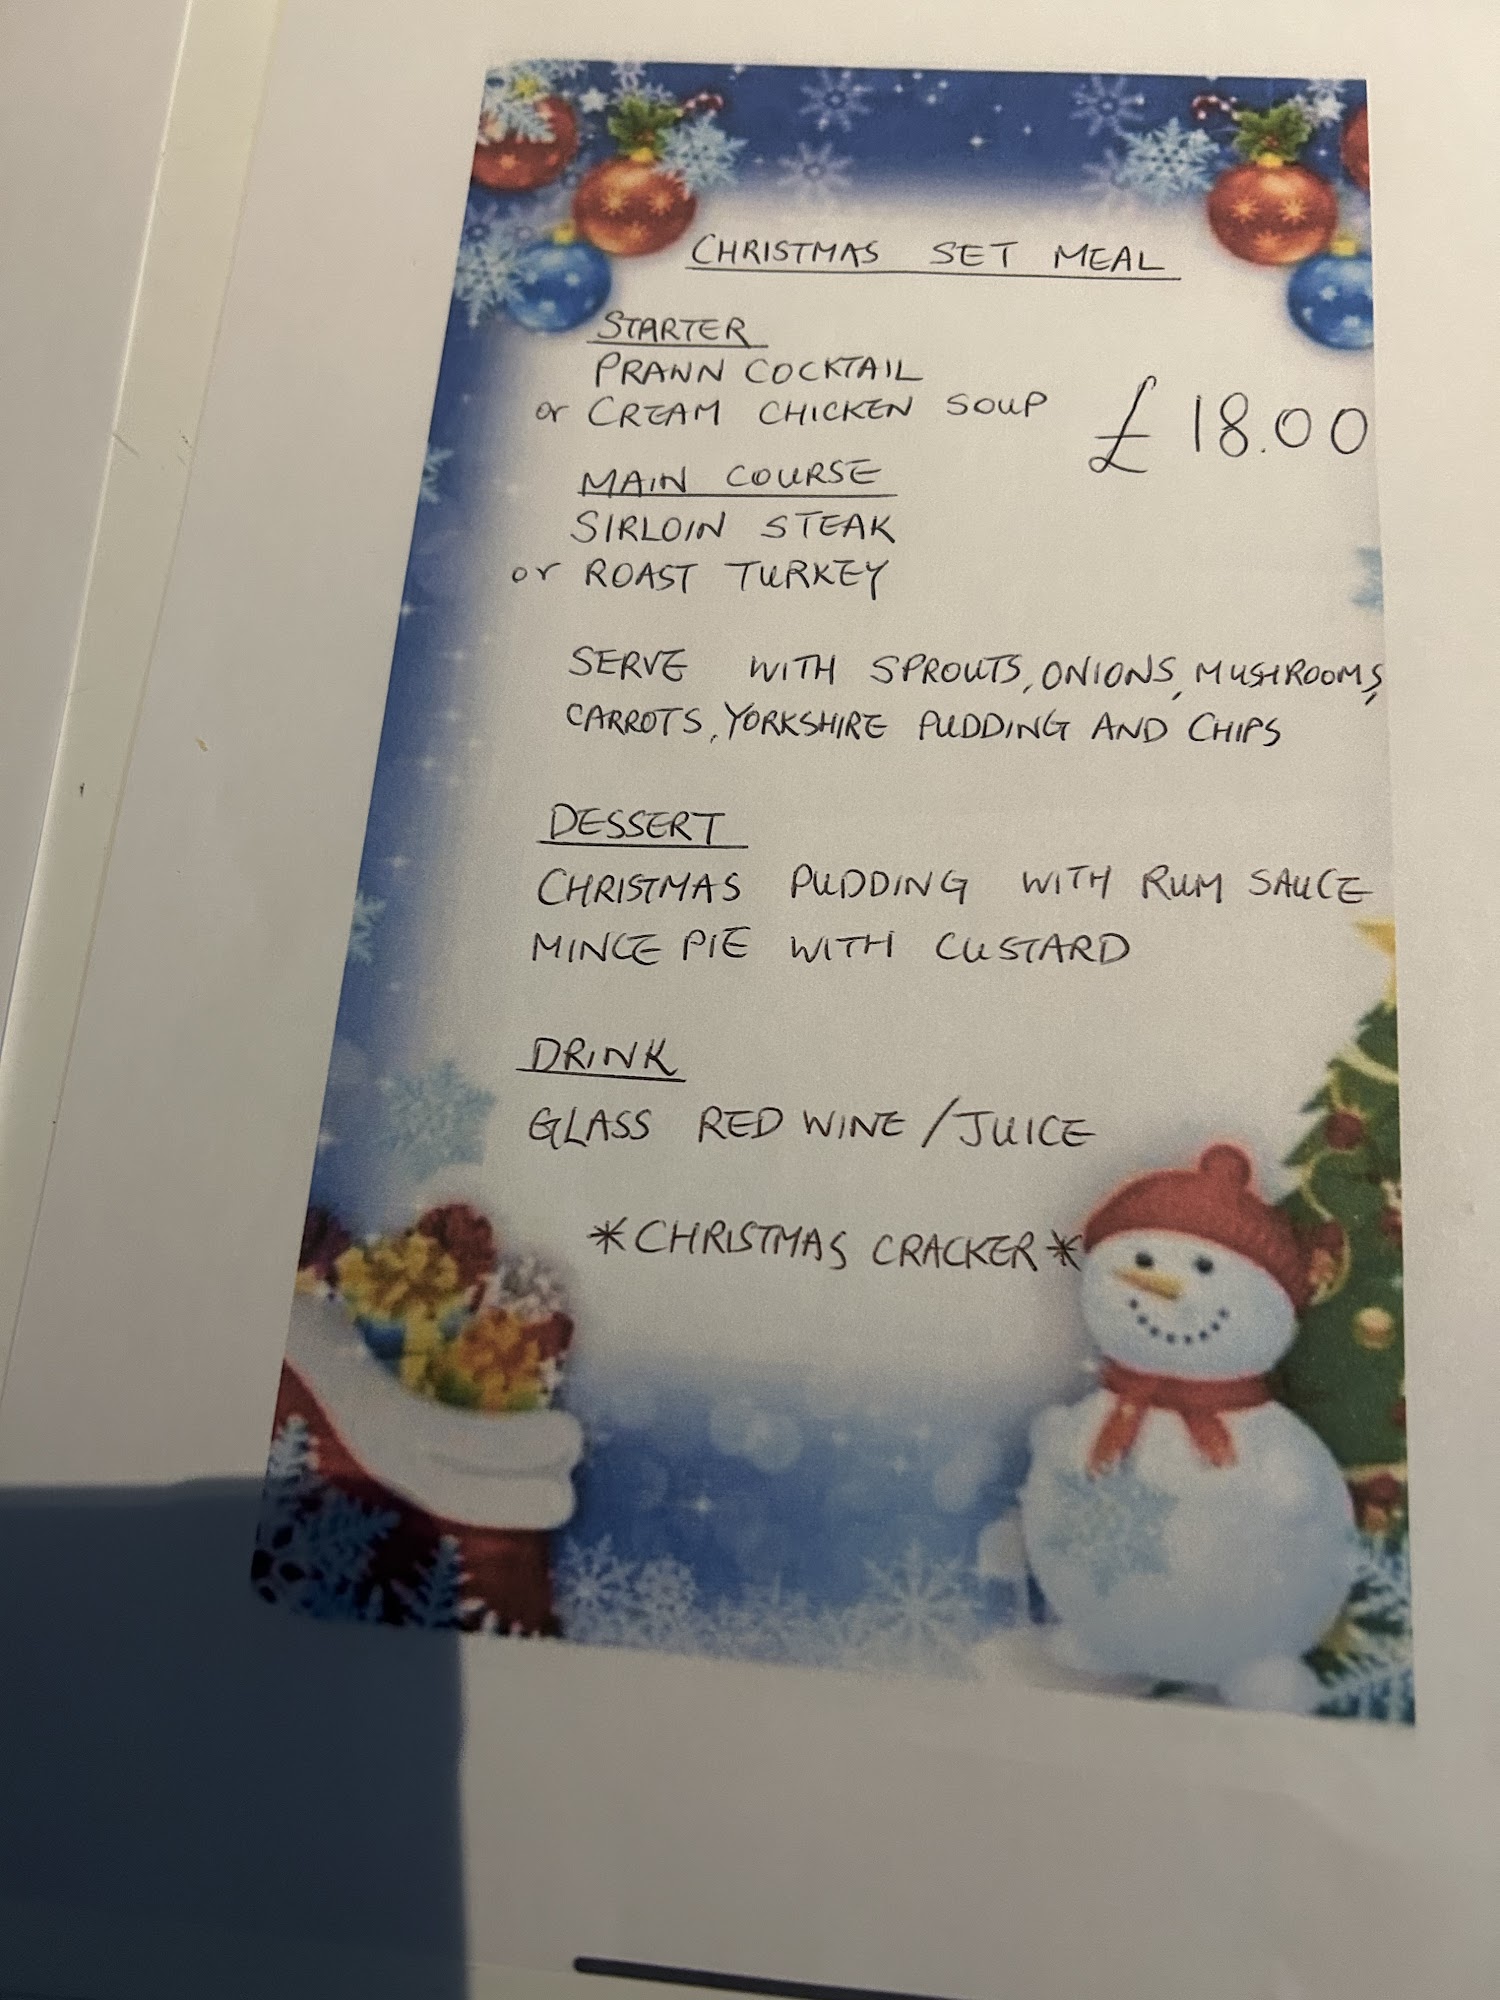 CHRISTMAS SET MEAL
STARTER
PRAWN COCKTAIL
or CREAM CHICKEN SOUP
£18.00
MAIN COURSE
SIRLOIN STEAK
or ROAST TURKEY
SERVE WITH SPROUTS, ONIONS, MUSHROOMS,
CARROTS, YORKSHIRE PUDDING AND CHIPS
DESSERT
CHRISTMAS PUDDING WITH RUM SAUCE
MINCE PIE WITH CUSTARD
DRINK
GLASS RED WINE / JUICE
*CHRISTMAS CRACKER*